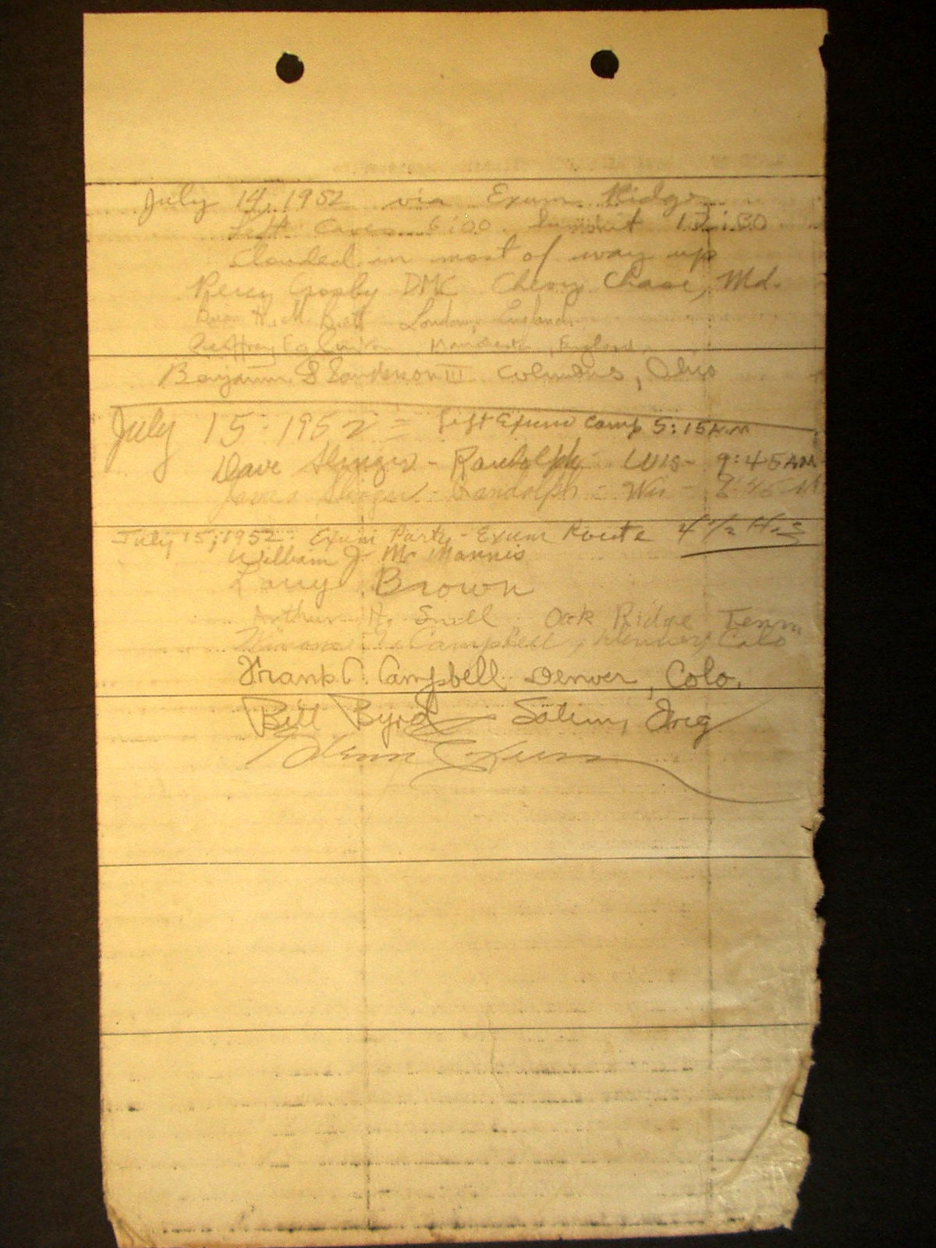 July 14, 1952 via Exum Ridge
Left Caves 6:00 Summit 12:30
Clouded in most of way up
Percy Crosby DMC Chevy Chase, Md.
London, England
Geoffrey England
Benjamin B Sanderson III Columbus, Ohio
July 15-1952 = Left Exum Camp 5:15 AM
Dave Slinger - Randolph - Wis - 9:45 AM
James Slinger - Randolph - Wis -
July 15, 1952 Exum Party - Exum Route 4 1/2 Hrs
William J. McMannis
Larry Brown
Arthur H. Snell Oak Ridge Tenn
Campbell, Denver, Colo
Frank C. Campbell Denver, Colo.
Bill Byrd Salem, Oreg
Glenn Exum